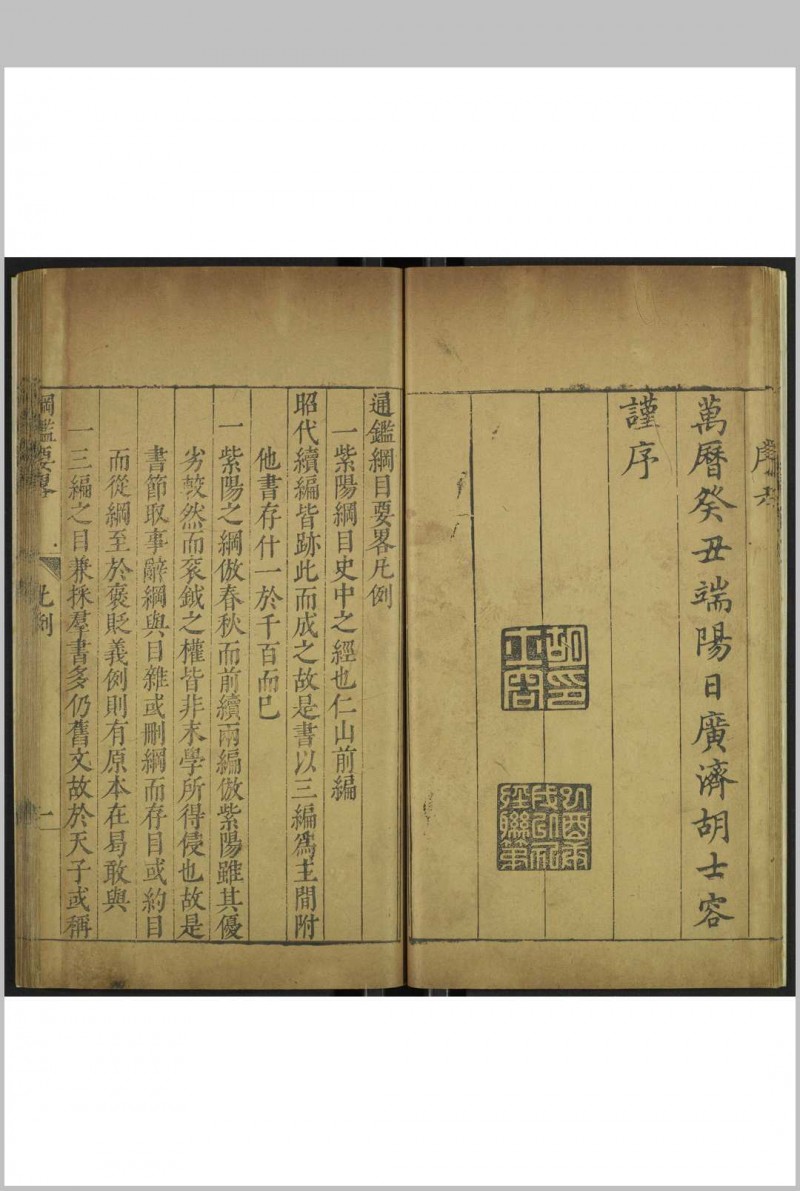 序
萬曆癸丑端陽日廣濟胡士容
謹序
胡印士容
通鑑綱目要畧凡例
一紫陽綱目史中之經也仁山前編
昭代續編皆跡此而成之故是書以三編爲主間附
他書存什一於千百而已
一紫陽之綱倣春秋而前續兩編倣紫陽雖其優
劣較然而衮鉞之權皆非末學所得侵也故是
書節取事辭綱與目雜或刪綱而存目或約目
而從綱至於褒貶義例則有原本在曷敢與
一三編之目兼採羣書多仍舊文故於天子或稱
綱鑑要畧 凡例 一